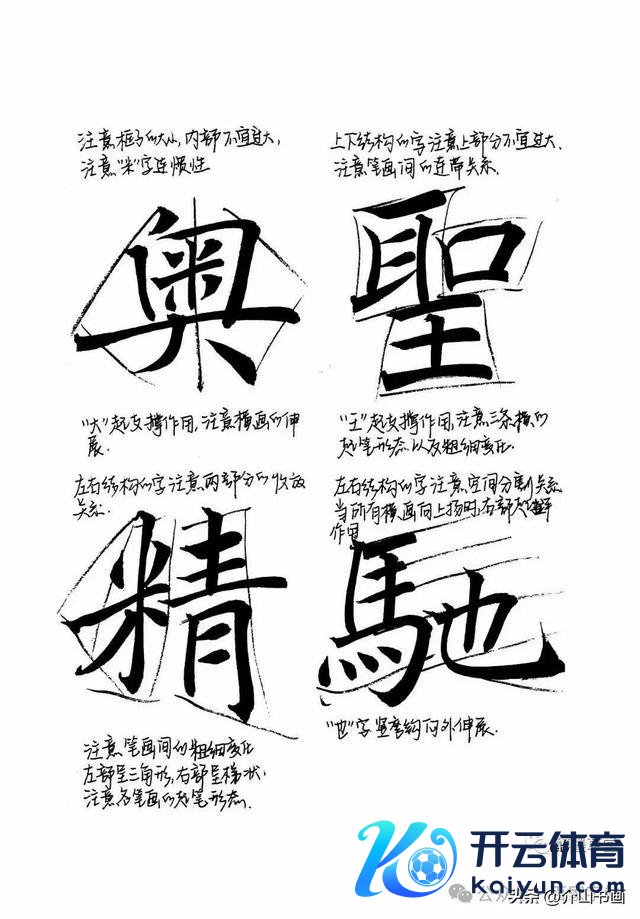 注意框子的大小,内部不宜过大,
注意"米"字连惯性
奥
"大"起支撑作用,注意横画的伸
展.
上下结构的字注意上部分不宜过大.
注意笔画间的连带关系.
聖
"王"起支撑作用,注意三条横的
起笔形态以及粗细变化.
左右结构的字注意两部分的收放
关系.
精
注意笔画间的粗细变化
左部呈三角形,右部呈梯状,
注意各笔画的起笔形态.
左右结构的字注意空间分割关系
当所有横画向上扬时,右部
作用
馳
"也"字竖弯钩向外伸展.
开云体育
kaiyun.com
公众
头条@介山书画